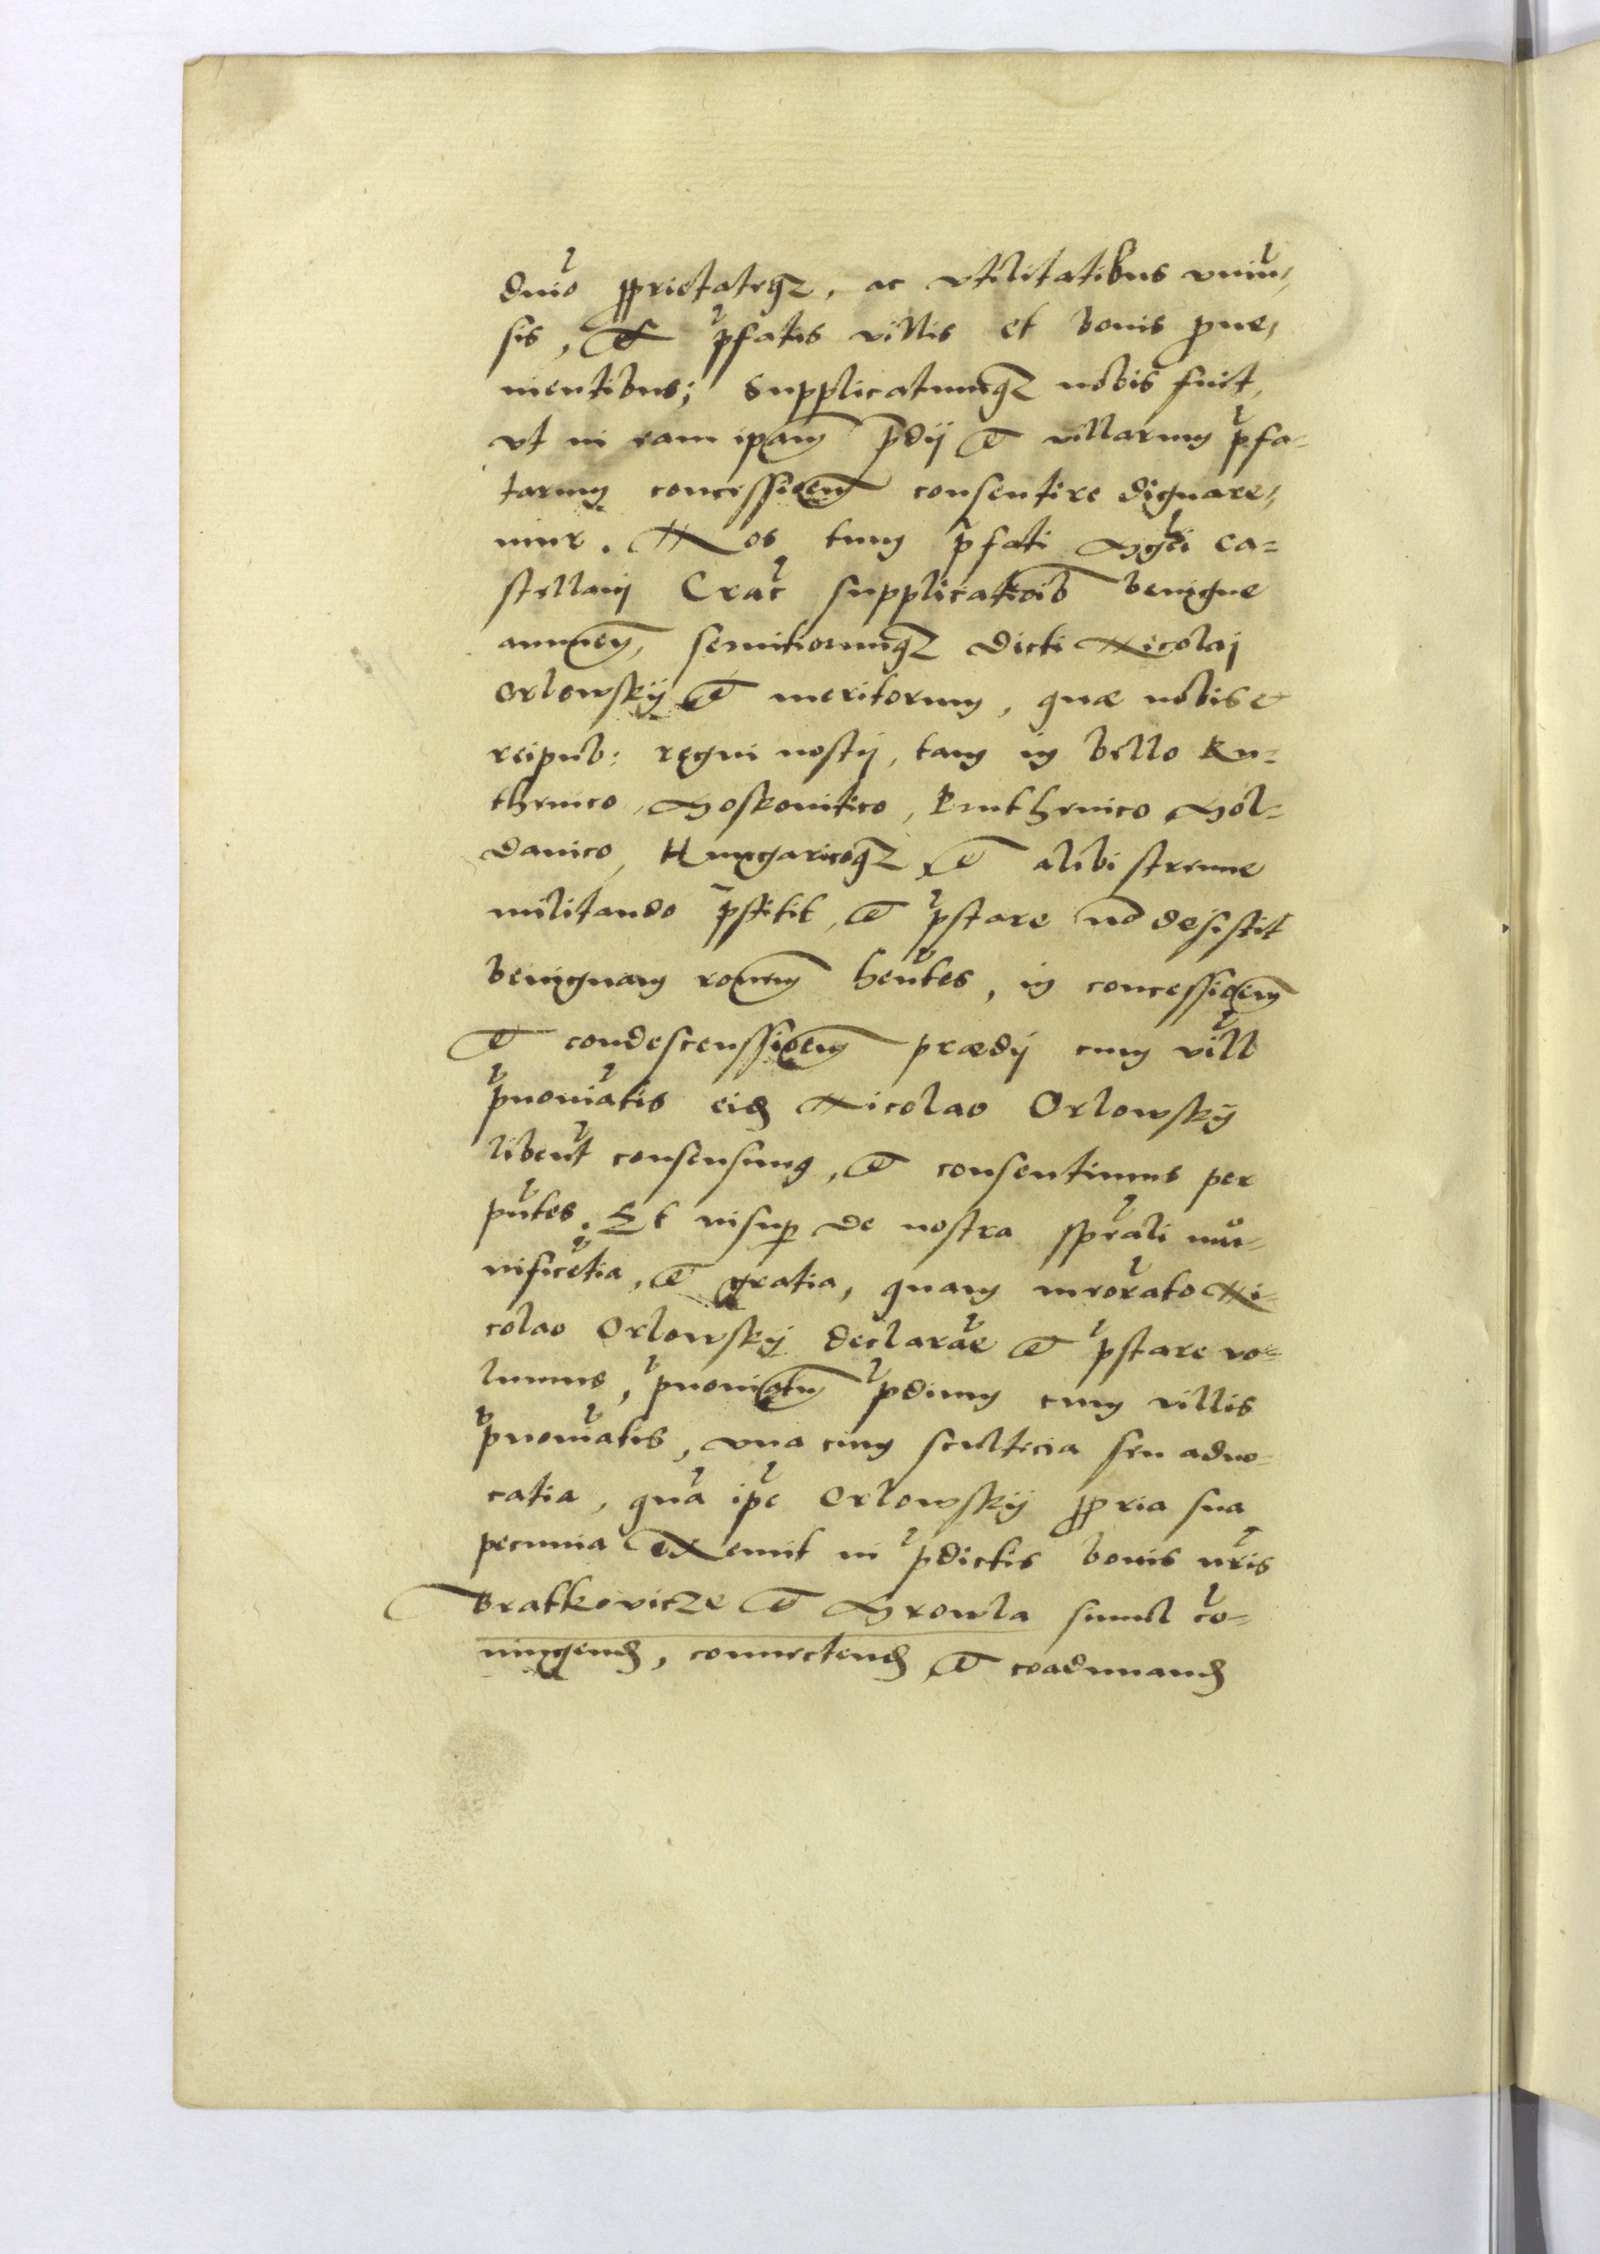 dnio pprietateq3, ac vtilitatibus vniu,
sis, Ex pfatis villis et bonis prove,
nientibus; Supplicatumq3 nobis fuit,
vt in eam ipam prdij et villarum pfa-
tarum concessioem consentire dignare,
mur. Nos tum pfati Mgci Ca-
stellani Crac supplicatioib benigne
annuen, seruitiorumq3 dicti Nicolai
Orlowskij et meritorum, quæ nobis et
reipub: regni nostrj, tam in bello Ru-
thenico, Moskouitico, Pruthenico Mol-
dauico, Hungaricoq3, et alibi strenue
militando pstitit, et pstare no desistit
benignam ronem hentes, in concessioem
et condescenssioem prædij cum vill
pnoniatis eid Nicolao Orlowskÿ
libent consensum, et consentimus per
pntes. Et insup de nostra spali mu-
nificetia, et gratia, quam memorato Ni-
colao Orlowskÿ declarae et pstare vo-
lumus, pnoniatum pdium cum villis
pnoniatis, vna cum scultecia seu aduo-
catia, qua ipe Orlowskÿ ppria sua
pecunia Exemit in pdictis bonis nris
Bratkovicze et Mrowla simul co-
niungend, connectend et coadunand